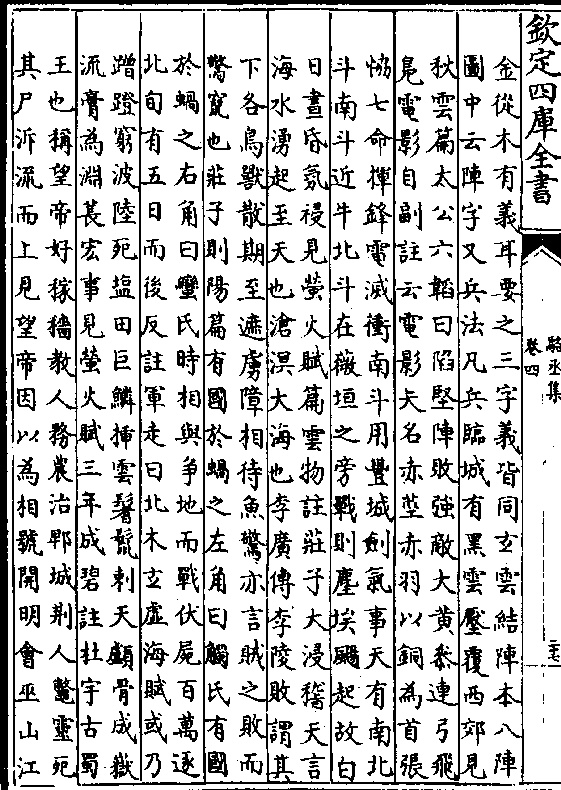 欽定四庫全書
駱丞集
卷四
二七
金從木有義耳要之三字義皆同玄雲結陣本八陣
圖中云陣字又兵法凡兵臨城有黑雲壓覆西郊見
秋雲篇太公六韜曰陷堅陣敗強敵大黃叅連弓飛
鳧電影自副註云電影矢名赤莖赤羽以銅為首張
恊七命揮鋒電滅衝南斗用豐城劍氣事天有南北
斗南斗近牛北斗在薇垣之旁戰則塵埃颺起故白
日晝昏氛祲見螢火賦篇雲物註莊子大浸稽天言
海水湧起至天也滄溟大海也李廣傳李陵敗謂其
下各鳥獸散期至遮虜障相待魚驚亦言賊之敗而
驚竄也莊子則陽篇有國於蝸之左角曰觸氏有國
於蝸之右角曰蠻氏時相與爭地而戰伏屍百萬逐
北旬有五日而後反註軍走曰北木玄虛海賦或乃
蹭蹬窮波陸死塩田巨鱗揷雲鬐鬛刺天顱骨成嶽
流膏為淵萇宏事見螢火賦三年成碧註杜宇古蜀
王也稱望帝好稼穡教人務農治郫城荆人鼈靈死
其尸泝流而上見望帝因以為相號開明會巫山江